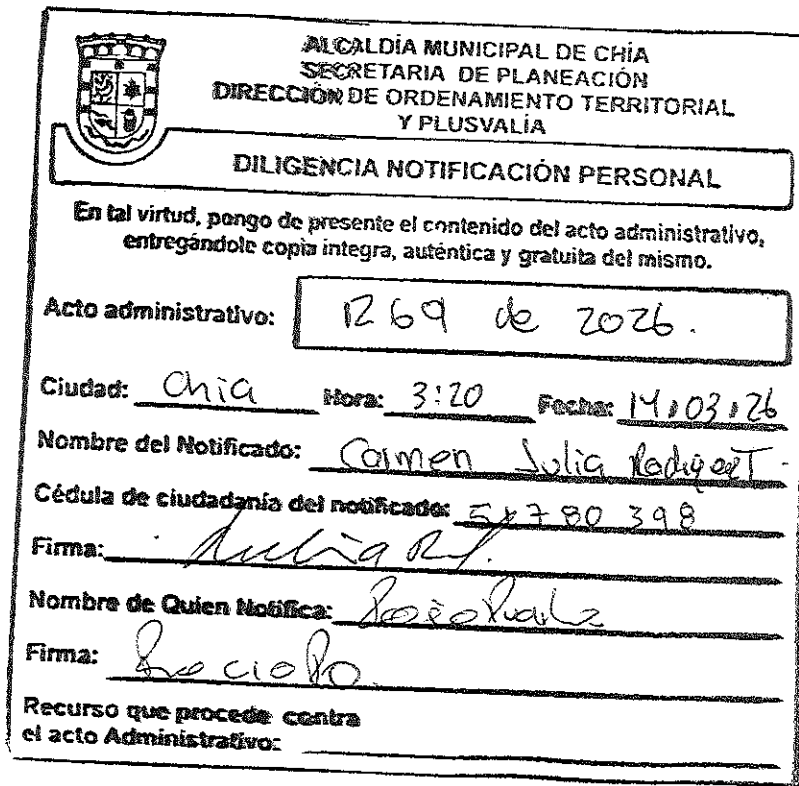 ALCALDÍA MUNICIPAL DE CHÍA
SECRETARIA DE PLANEACIÓN
DIRECCIÓN DE ORDENAMIENTO TERRITORIAL
Y PLUSVALÍA
DILIGENCIA NOTIFICACIÓN PERSONAL
En tal virtud, pongo de presente el contenido del acto administrativo,
entregándole copia integra, auténtica y gratuita del mismo.
Acto administrativo: 1269 de 2026.
Ciudad: Chia Hora: 3:20 Fecha: 14,03,26
Nombre del Notificado: Carmen Julia
Cédula de ciudadanía del notificado: 780 398
Firma:
Nombre de Quien Notifica:
Firma:
Recurso que procede contra
el acto Administrativo: